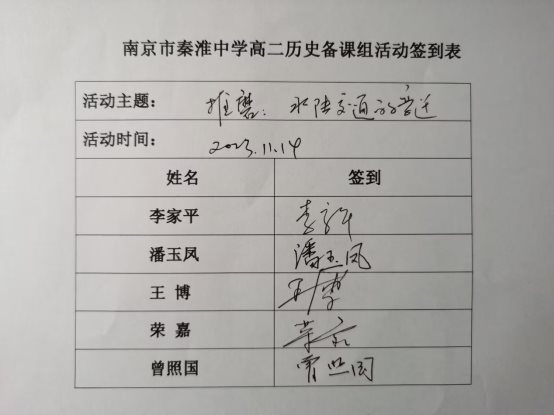 南京市秦淮中学高二历史备课组活动签到表
活动主题： 推磨：水陆交通的变迁
活动时间： 2023.11.14
姓名 签到
李家平 李家平
潘玉凤 潘玉凤
王 博 王博
荣 嘉 荣嘉
曾照国 曾照国